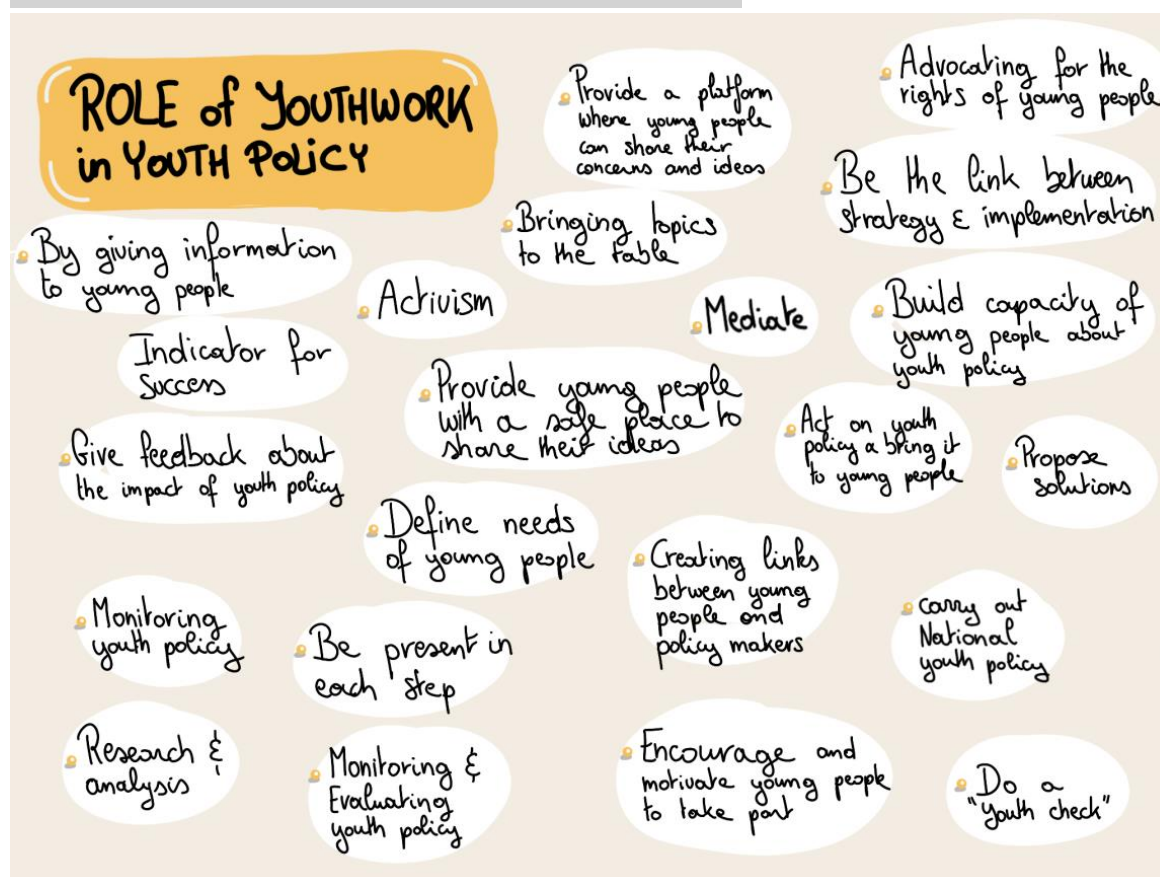 ROLE of YOUTHWORK
in YOUTH POLICY
Provide a platform
where young people
can share their
concerns and ideas
Advocating for the
rights of young people
Be the link between
strategy & implementation
Bringing topics
to the table
By giving information
to young people
Activism
Mediate
Build capacity of
young people about
youth policy
Indicator for
success
Provide young people
with a safe place to
share their ideas
Act on youth
policy a bring it
to young people
Propose
solutions
Give feedback about
the impact of youth policy
Define needs
of young people
Creating links
between young
people and
policy makers
carry out
National
youth policy
Monitoring
youth policy
Be present in
each step
Research &
analysis
Monitoring &
Evaluating
youth policy
Encourage and
motivate young people
to take part
Do a
"youth check"